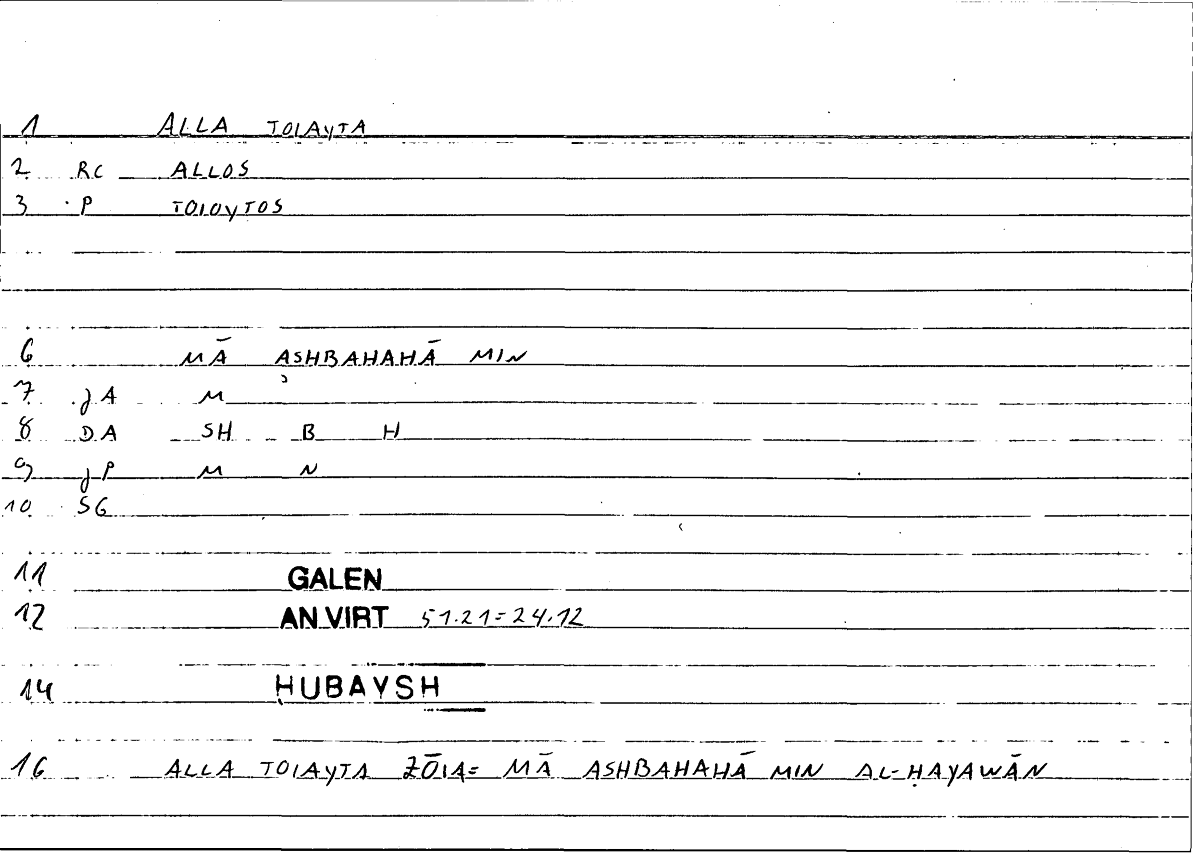 1 ALLA TOIAYTA
2 RC ALLOS
3 P TOIOYTOS
6 MĀ ASHBAHAHĀ MIN
7 JA M
8 DA SH B H
9 JP M N
10 SG
11 GALEN
12 AN VIRT 51.21=24.12
14 ḤUBAYSH
16 ALLA TOIAYTA ZŌIA= MĀ ASHBAHAHĀ MIN AL-ḤAYAWĀN